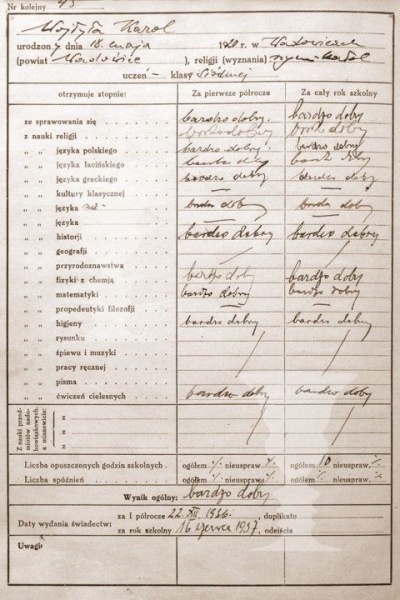 Nr kolejny 43
Wojtyła Karol
urodzony dnia 18. maja 1920 r. w Wadowicach
(powiat Wadowice ), religji (wyznania) rzym-katol
uczeń – klasy siódmej
otrzymuje stopnie: Za pierwsze półrocze Za cały rok szkolny
ze sprawowania się bardzo dobry. bardzo dobry
z nauki religji bardzo dobry bardzo dobry
„ „ języka polskiego bardzo dobry bardzo dobry
„ „ języka łacińskiego bardzo dobry bardzo dobry
„ „ języka greckiego bardzo dobry bardzo dobry
„ „ kultury klasycznej — —
„ „ języka bardzo dobry bardzo dobry
„ „ języka — —
„ „ historji bardzo dobry bardzo dobry
„ „ geografji
„ „ przyrodoznawstwa
„ „ fizyki z chemją bardzo dobry bardzo dobry
„ „ matematyki bardzo dobry bardzo dobry
„ „ propedeutyki filozofji
„ „ higjeny bardzo dobry bardzo dobry
„ „ rysunku
„ „ śpiewu i muzyki
„ „ pracy ręcznej
„ „ pisma
„ „ ćwiczeń cielesnych bardzo dobry bardzo dobry
Z nauki przedmiotów nadobowiązkowych, a mianowicie:
z
z
z
Liczba opuszczonych godzin szkolnych ogółem nieuspraw. ogółem 10 nieuspraw.
Liczba spóźnień ogółem nieuspraw. ogółem nieuspraw.
Wynik ogólny: bardzo dobry
Daty wydania świadectw:
za I półrocze 22. XII. 1936. duplikatu
za rok szkolny 16 czerwca 1937. odejścia
Uwagi: